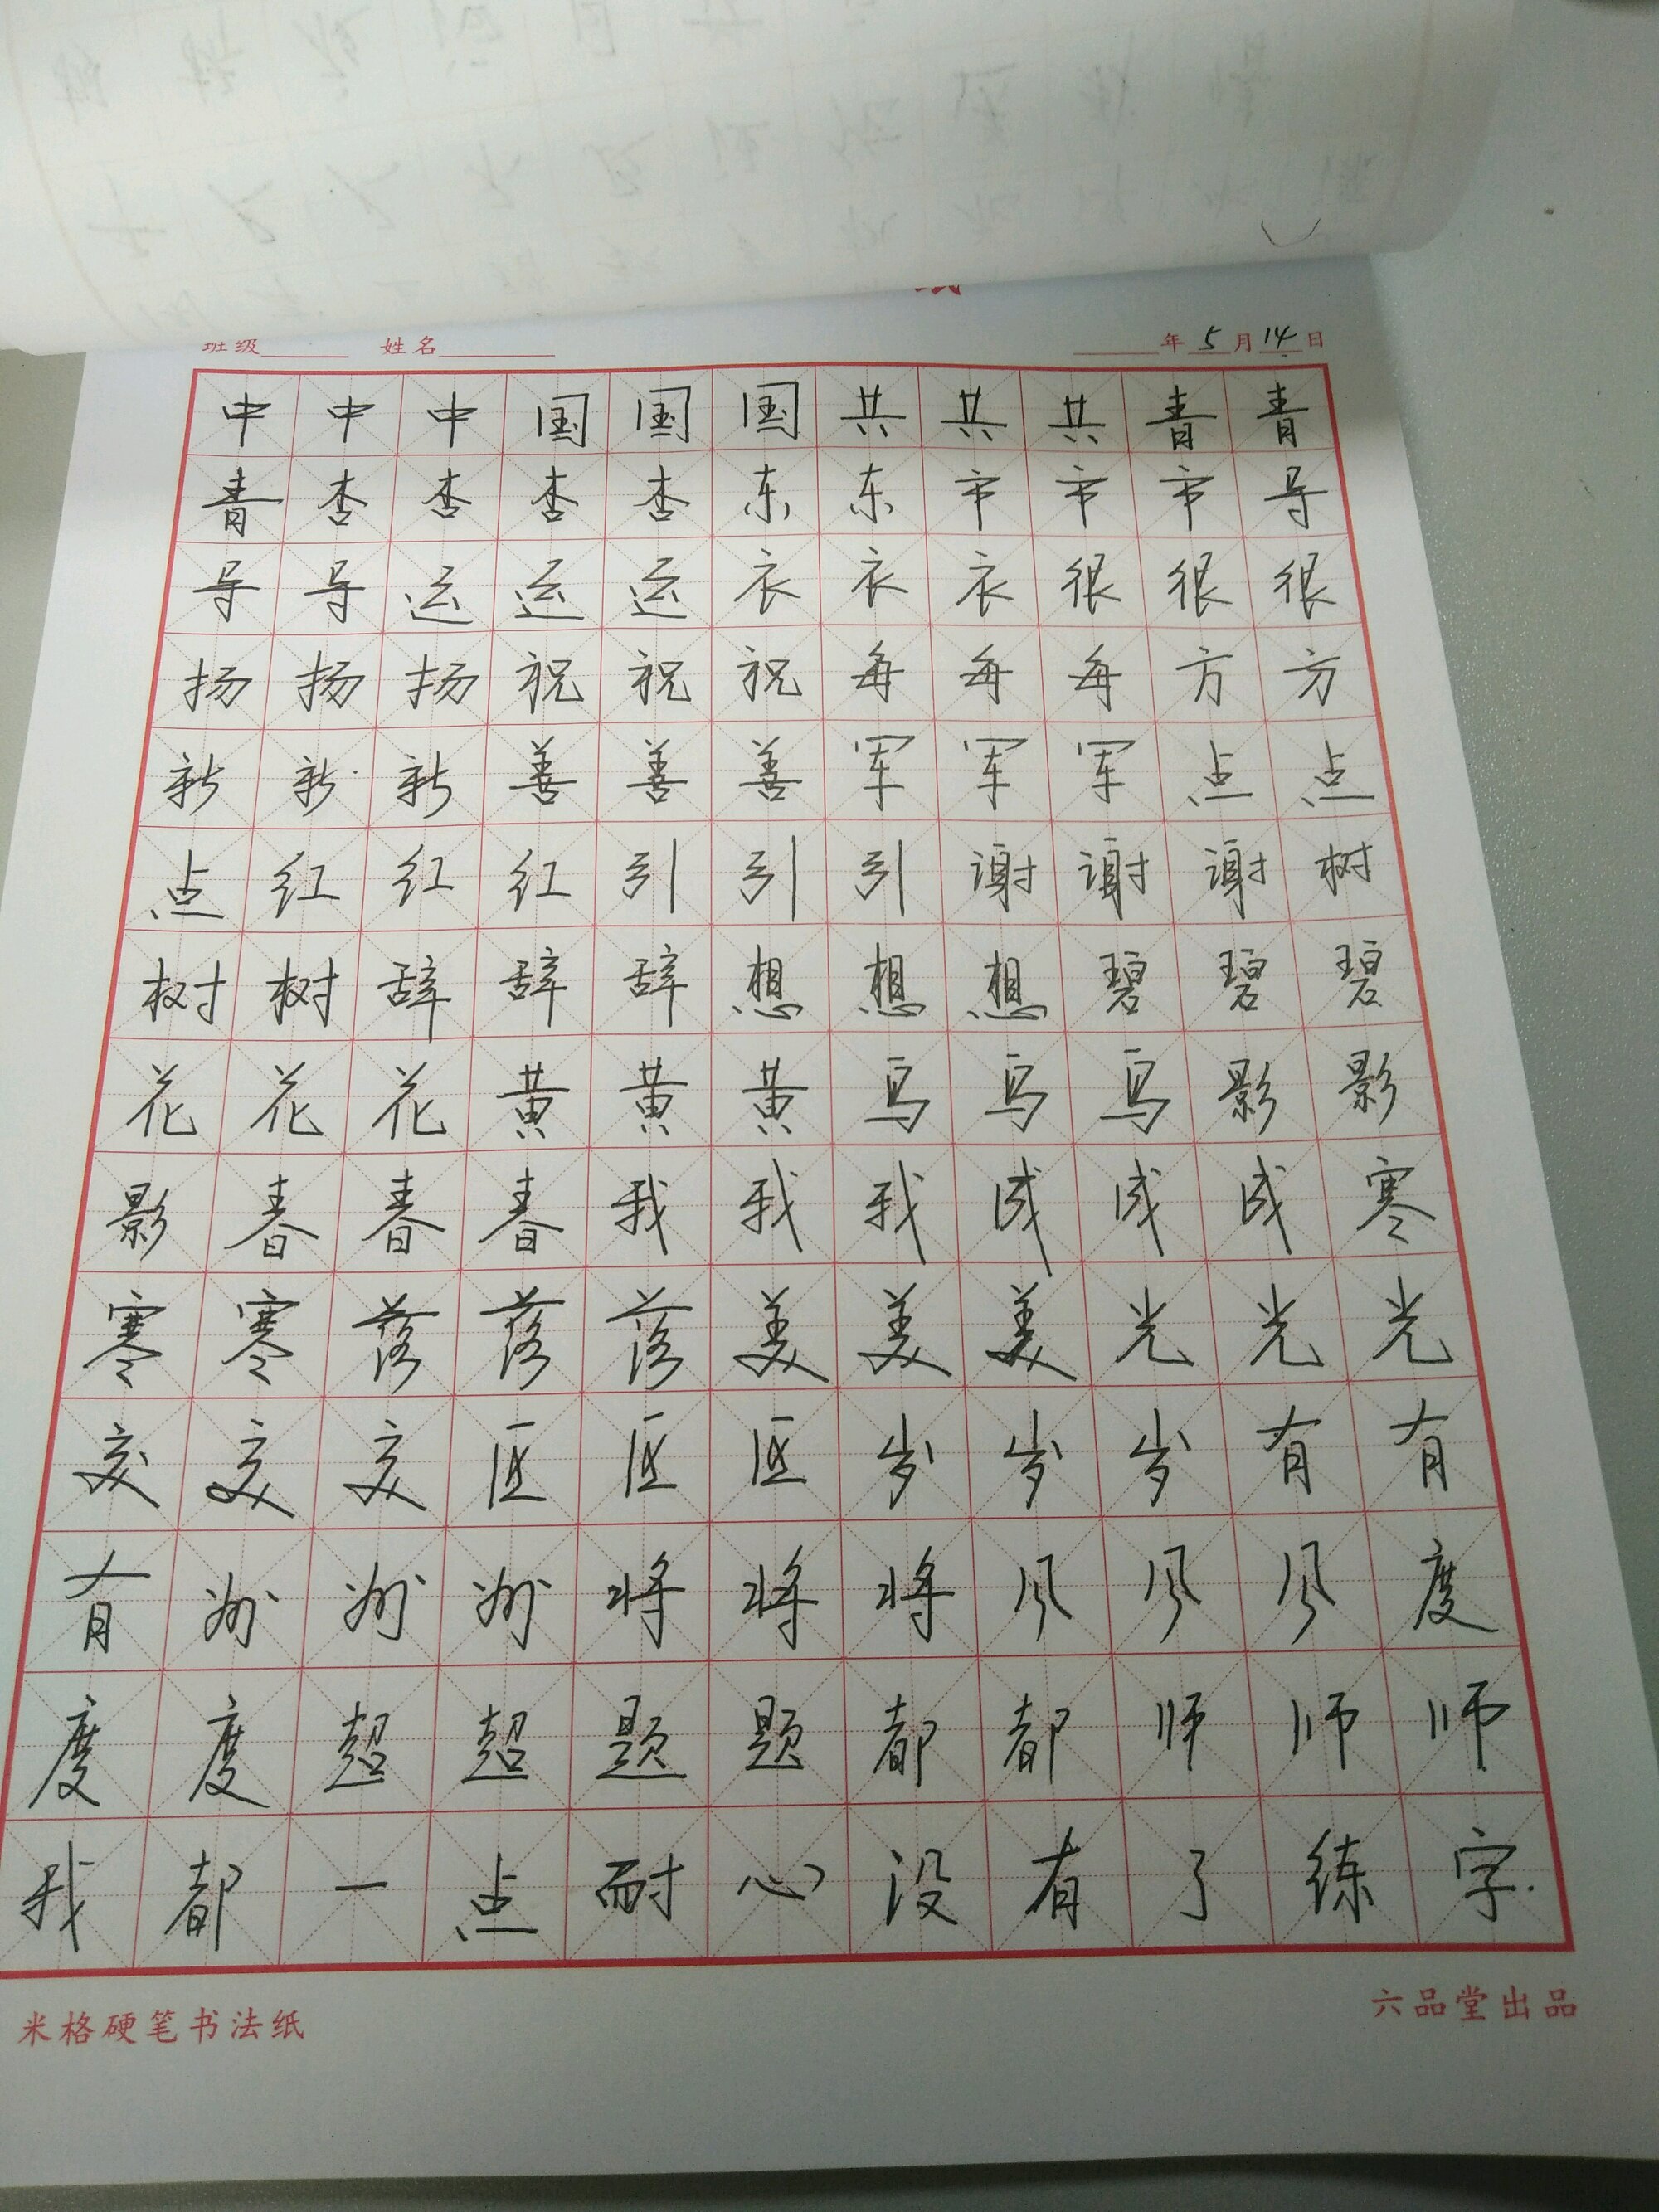 班级 姓名 年 5 月 14 日
中 中 中 国 国 国 共 共 共 青 青
青 杏 杏 杏 杏 东 东 市 市 市 导
导 导 运 运 运 衣 衣 衣 很 很 很
扬 扬 扬 祝 祝 祝 每 每 每 方 方
新 新 新 善 善 善 军 军 军 点 点
点 红 红 红 引 引 引 谢 谢 谢 树
树 树 辞 辞 辞 想 想 想 碧 碧 碧
花 花 花 黄 黄 黄 写 写 写 影 影
影 春 春 春 我 我 我 成 成 成 寒
寒 寒 落 落 落 美 美 美 光 光 光
交 交 交 匠 匠 匠 岁 岁 岁 有 有
有 州 州 州 将 将 将 风 风 风 度
度 度 超 超 题 题 都 都 师 师 师
我 都 一 点 耐 心 没 有 了 练 字.
米格硬笔书法纸 六品堂出品